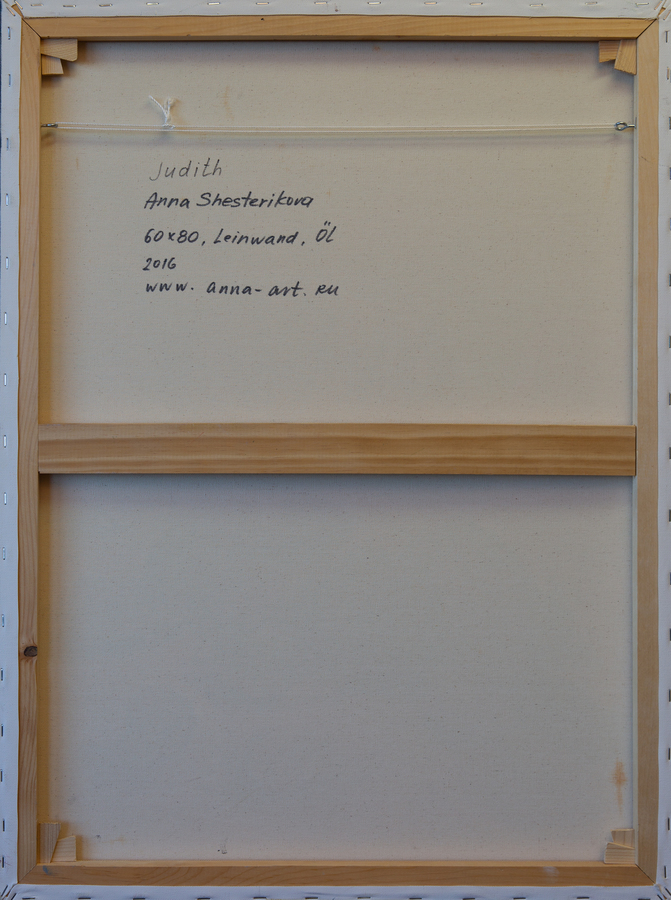 Judith
Anna Shesterikova
60x80, Leinwand, Öl
2016
www. anna-art. eu